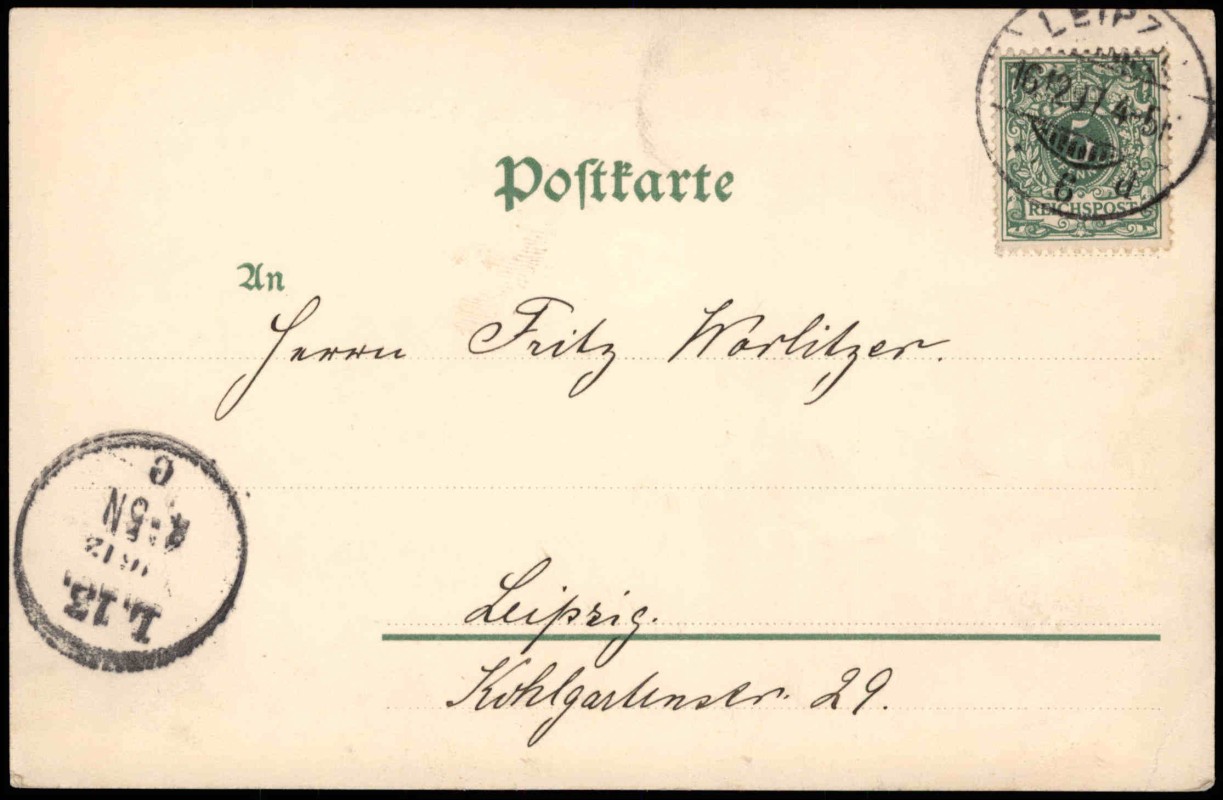 LEIPZ
16.12.97.4-5N
5
6 d
REICHSPOST
Poſtkarte
An
Herrn Fritz Worlitzer.
Leipzig.
Kohlgartenstr. 29.
L.13.
16 12
5N
C